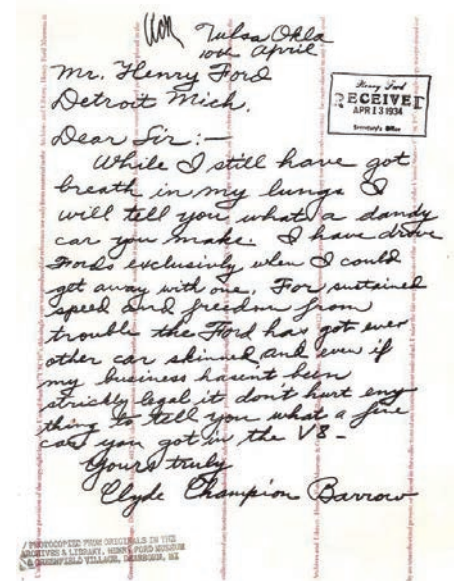 Tulsa Okla
10th April
Mr. Henry Ford
Detroit Mich.
Henry Ford
RECEIVED
APR 13 1934
Secretary's Office
Dear Sir:-
While I still have got
breath in my lungs I
will tell you what a dandy
car you make. I have drove
Fords exclusively when I could
get away with one. For sustained
speed and freedom from
trouble the Ford has got ever
other car skinned and even if
my business hasen't been
strickly legal it don't hurt eny
thing to tell you what a fine
car you got in the V8 -
Yours truly
Clyde Champion Barrow
PHOTOCOPIED FROM ORIGINALS IN THE
ARCHIVES & LIBRARY, HENRY FORD MUSEUM
& GREENFIELD VILLAGE, DEARBORN, MI